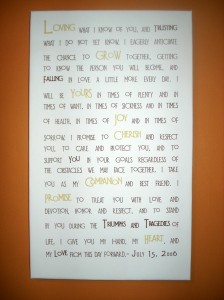 LOVING WHAT I KNOW OF YOU, AND TRUSTING
WHAT I DO NOT YET KNOW, I EAGERLY ANTICIPATE
THE CHANCE TO GROW TOGETHER, GETTING
TO KNOW THE PERSON YOU WILL BECOME, AND
FALLING IN LOVE A LITTLE MORE EVERY DAY. I
WILL BE YOURS IN TIMES OF PLENTY AND IN
TIMES OF WANT, IN TIMES OF SICKNESS AND IN TIMES
OF HEALTH, IN TIMES OF JOY AND IN TIMES OF
SORROW. I PROMISE TO CHERISH AND RESPECT
YOU, TO CARE AND PROTECT YOU, AND TO
SUPPORT YOU IN YOUR GOALS REGARDLESS OF
THE OBSTACLES WE MAY FACE TOGETHER. I TAKE
YOU AS MY COMPANION AND BEST FRIEND. I
PROMISE TO TREAT YOU WITH LOVE AND
DEVOTION, HONOR AND RESPECT, AND TO STAND
BY YOU DURING THE TRIUMPHS AND TRAGEDIES OF
LIFE. I GIVE YOU MY HAND, MY HEART, AND
MY LOVE FROM THIS DAY FORWARD.- JULY 15, 2006